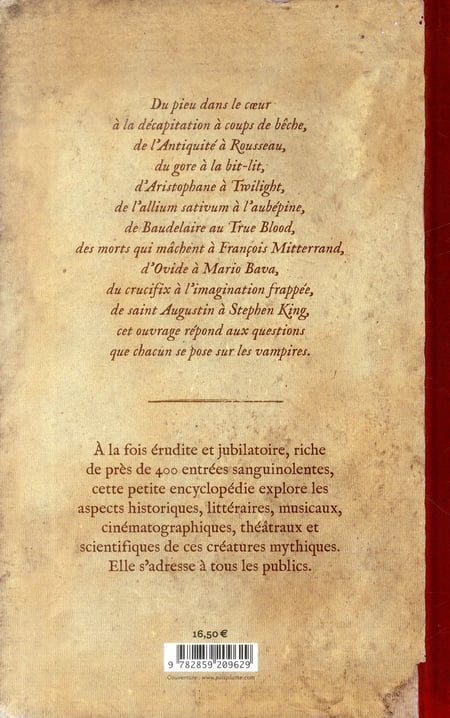 Du pieu dans le cœur
à la décapitation à coups de bêche,
de l'Antiquité à Rousseau,
du gore à la bit-lit,
d'Aristophane à Twilight,
de l'allium sativum à l'aubépine,
de Baudelaire au True Blood,
des morts qui mâchent à François Mitterrand,
d'Ovide à Mario Bava,
du crucifix à l'imagination frappée,
de saint Augustin à Stephen King,
cet ouvrage répond aux questions
que chacun se pose sur les vampires.
À la fois érudite et jubilatoire, riche
de près de 400 entrées sanguinolentes,
cette petite encyclopédie explore les
aspects historiques, littéraires, musicaux,
cinématographiques, théâtraux et
scientifiques de ces créatures mythiques.
Elle s'adresse à tous les publics.
16,50 €
9 782859 209629
Couverture : www.pulsplume.com